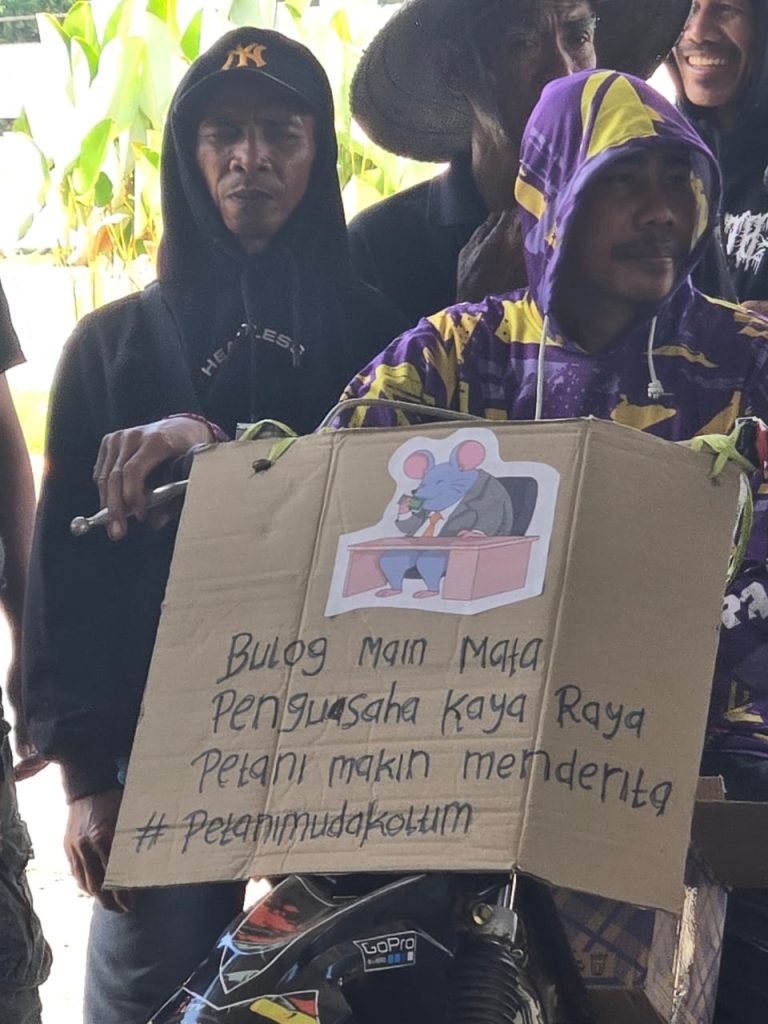 NY
HEARTLESS
Bulog main mata
Penguasaha kaya Raya
Petani makin menderita
# Petanimudakoltim
GoPro